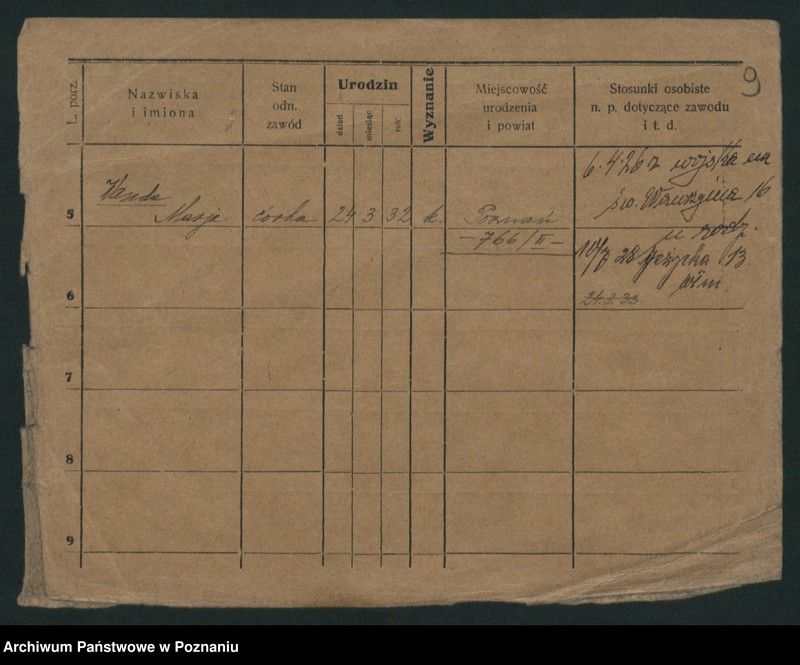 9
L. porz.
Nazwiska
i imiona
Stan
odn.
zawód
Urodzin
dzień
miesiąc
rok
Wyznanie
Miejscowość
urodzenia
i powiat
Stosunki osobiste
n. p. dotyczące zawodu
i t. d.
6.4.26 z wojska na
św. Wawrzyńca 16
u rodz.
5
Wanda
Marja
córka
24
3
32
k.
Poznań
—766/II—
10/7 28
13
6
24.3.32
7
8
9
Archiwum Państwowe w Poznaniu